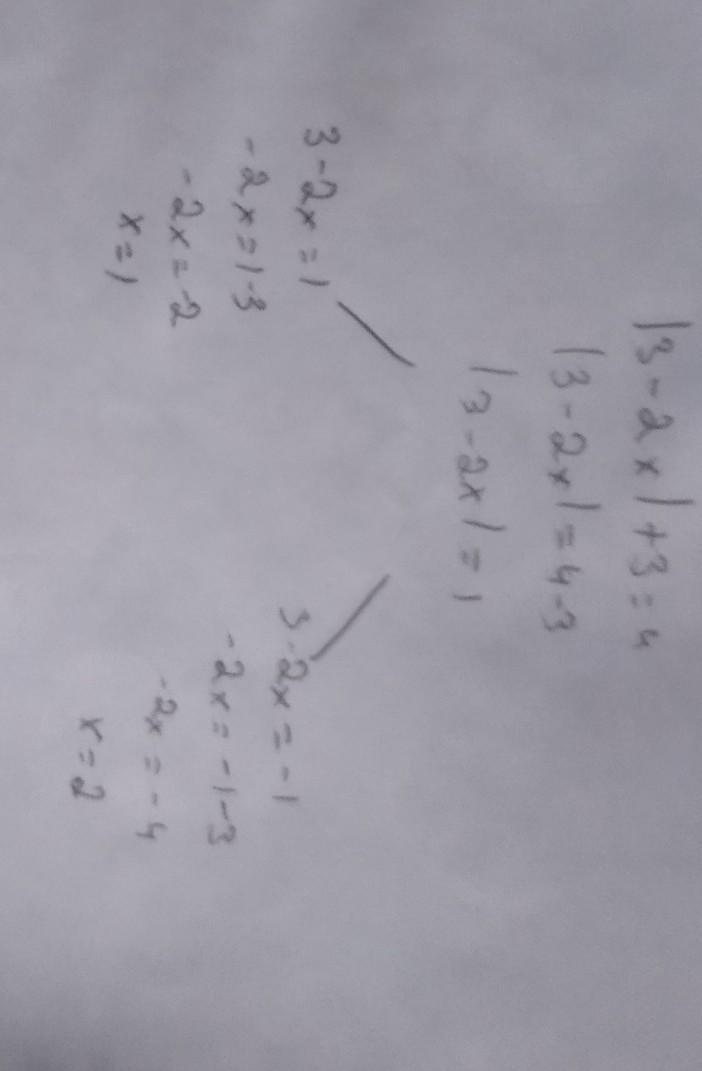 |3-2x|+3=4
|3-2x|=4-3
|3-2x|=1
3-2x=1
-2x=1-3
-2x=-2
x=1
3-2x=-1
-2x=-1-3
-2x=-4
x=2